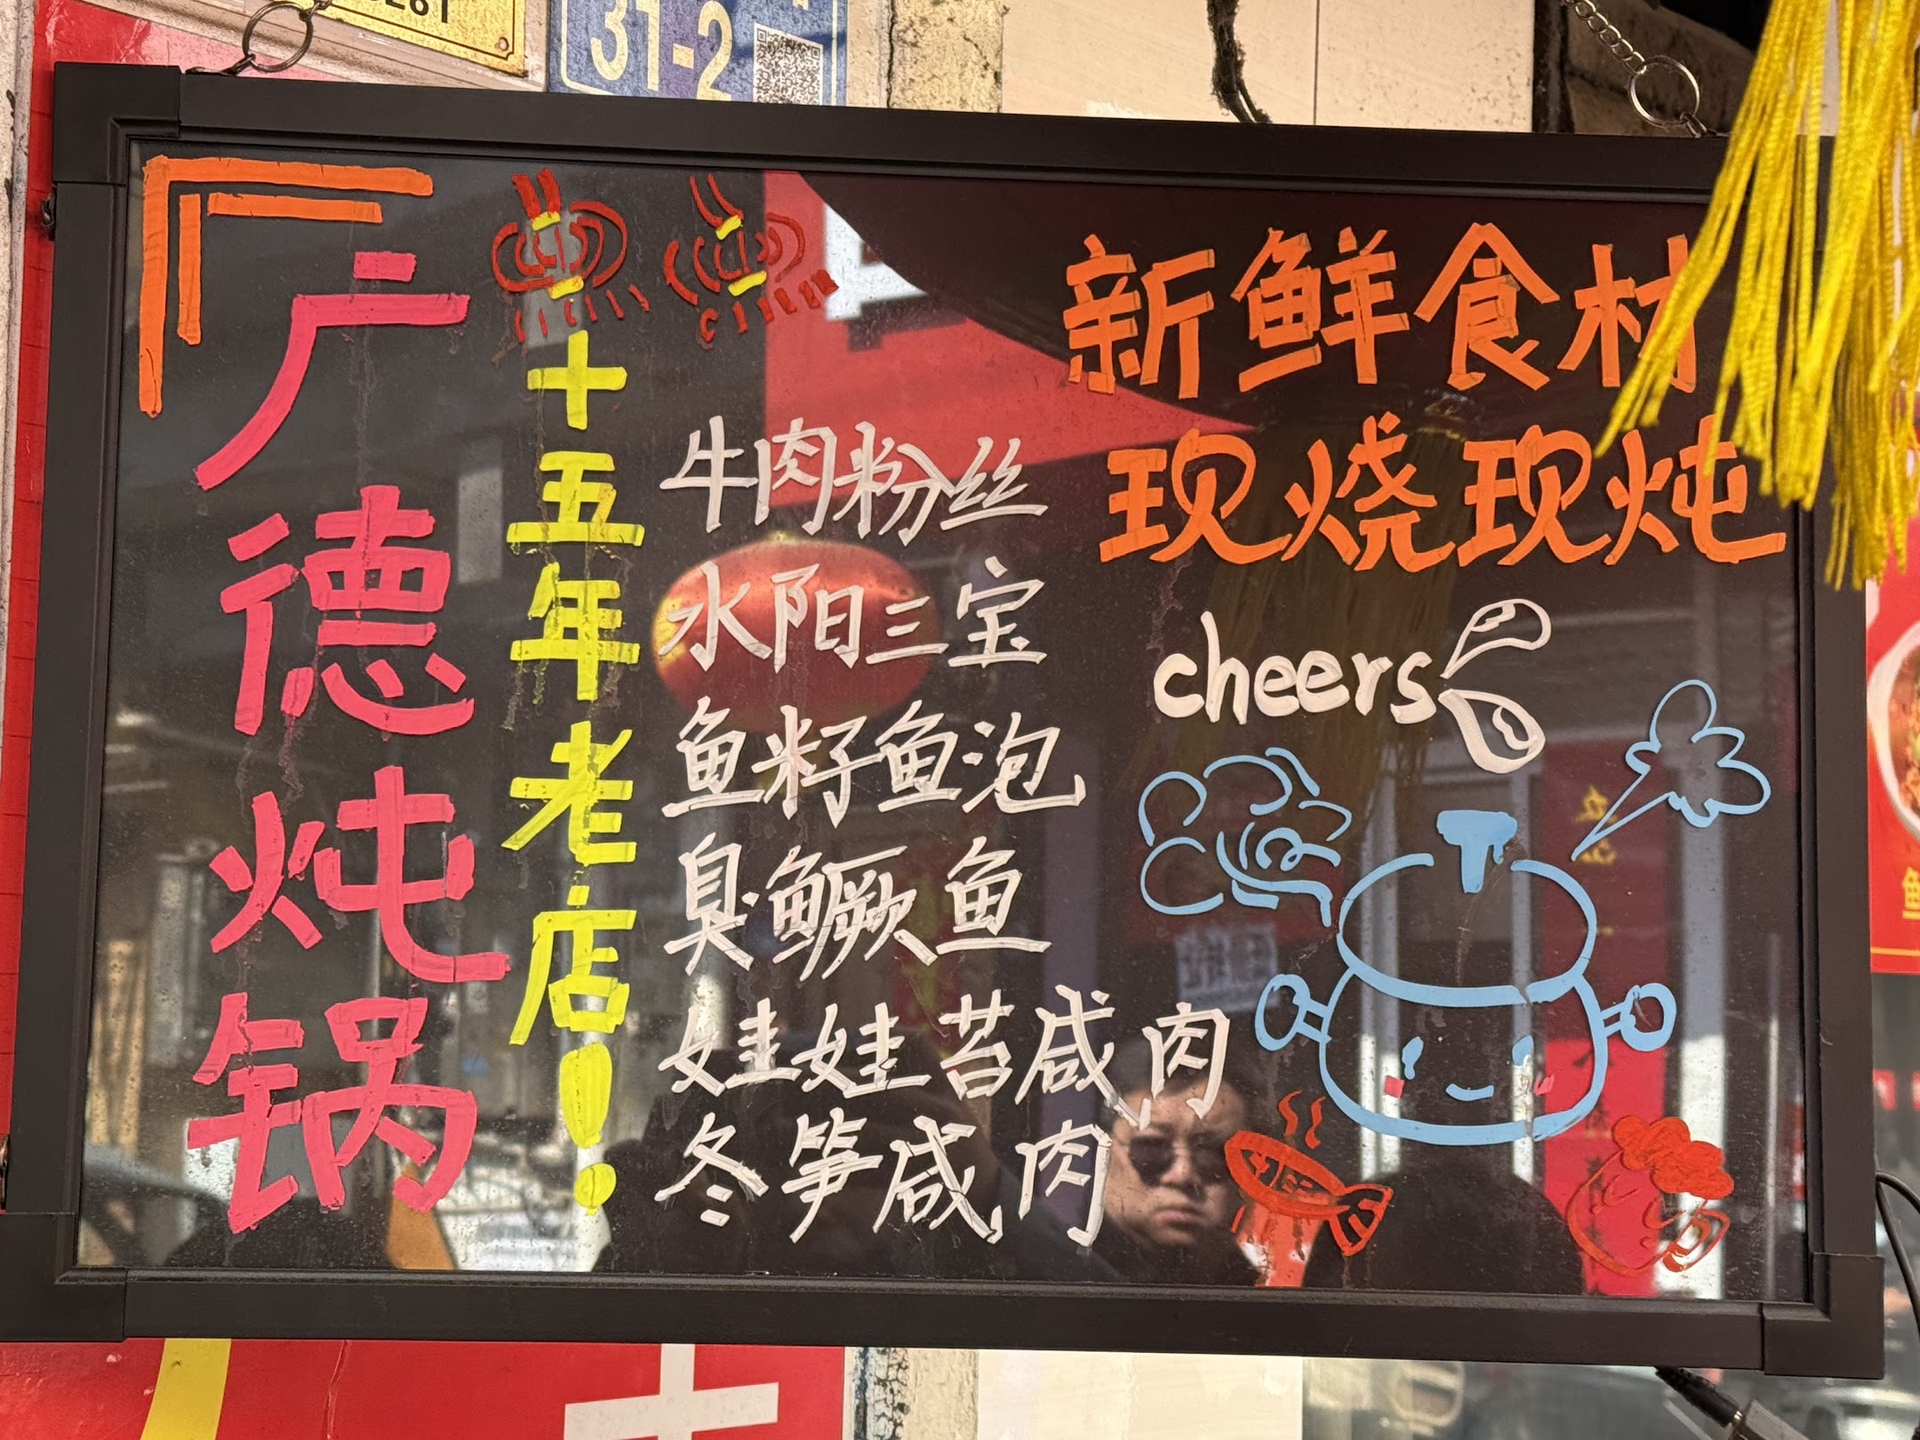 31-2
广德炖锅
十五年老店!
牛肉粉丝
水阳三宝
鱼籽鱼泡
臭鳜鱼
娃娃苔咸肉
冬笋咸肉
新鲜食材
现烧现炖
cheers